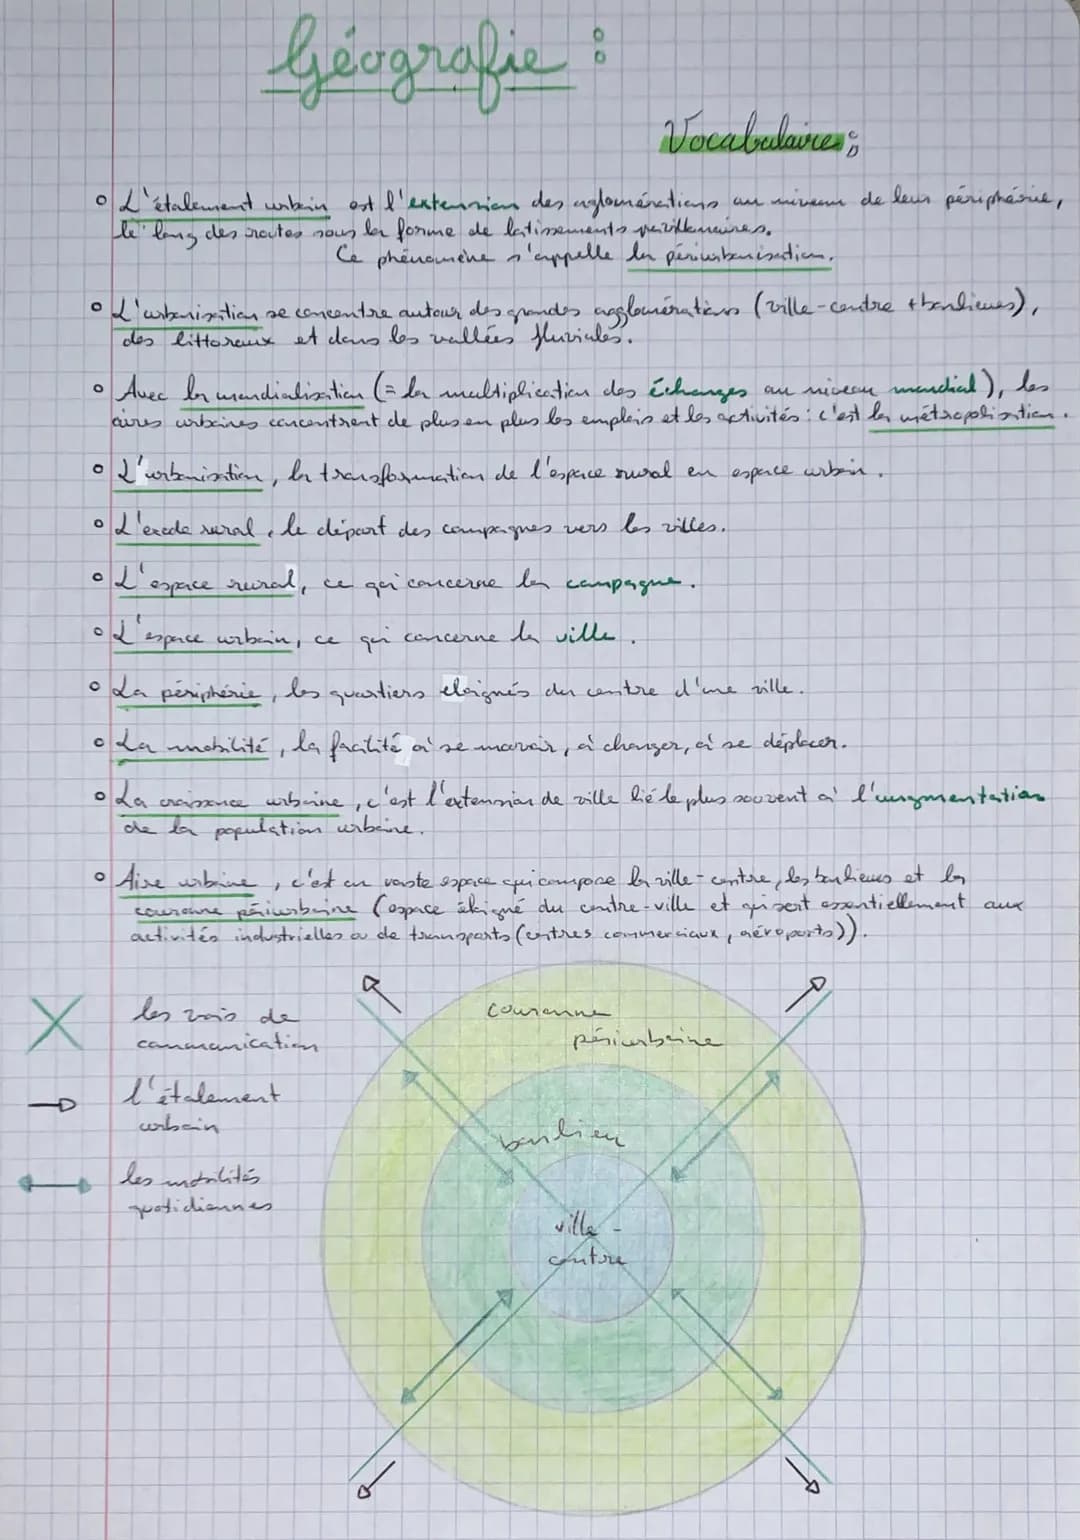 Géografie :
Vocabulaire :
L'étalement urbain est l'extension des aglomérations au niveau de leur périphérie,
le long des routes sous la forme de lotissements pavillonaires.
Ce phénomène s'appelle la périurbanisation.
L'urbanisation se concentre autour des grandes agglomérations (ville-centre + banlieues),
des littoraux et dans les vallées fluviales.
Avec la mondialisation (= la multiplication des échanges au niveau mondial), les
aires urbaines concentrent de plus en plus les emplois et les activités : c'est la métropolisation.
L'urbanisation, la transformation de l'espace rural en espace urbain.
L'exode rural, le départ des campagnes vers les villes.
L'espace rural, ce qui concerne la campagne.
L'espace urbain, ce qui concerne la ville.
La périphérie, les quartiers eloignés du centre d'une ville.
La mobilité, la facilité à se mouvoir, à changer, à se déplacer.
La croissance urbaine, c'est l'extension de ville lié le plus souvent à l'augmentation
de la population urbaine.
Aire urbaine, c'est un vaste espace qui compose la ville-centre, les banlieues et la
couronne périurbaine (espace éloigné du centre-ville et qui sert essentiellement aux
activités industrielles ou de transports (centres commerciaux, aéroports)).
les vois de
communication
l'étalement
urbain
les mobilités
quotidiennes
couronne
périurbaine
banlieu
ville -
centre